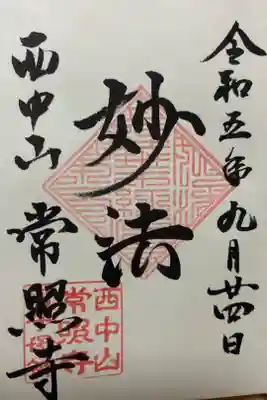 令和五年九月廿四日
妙法
西中山 常照寺
西中山
常照寺